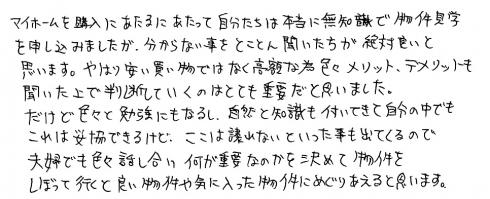 マイホームを購入にあたるにあたって自分たちは本当に無知識で物件見学
を申し込みましたが、分からない事をとことん聞いたらが絶対良いと
思います。やはり安い買い物ではなく高額な為色々メリット、デメリットも
聞いた上で判断していくのはとても重要だと思いました。
だけど色々と勉強にもなるし、自然と知識も付いてきて自分の中でも
これは妥協できるけど、ここは譲れないといった事も出てくるので
夫婦でも色々話し合い何が重要なのかを決めて物件を
しぼって行くと良い物件や気に入った物件にめぐりあえると思います。